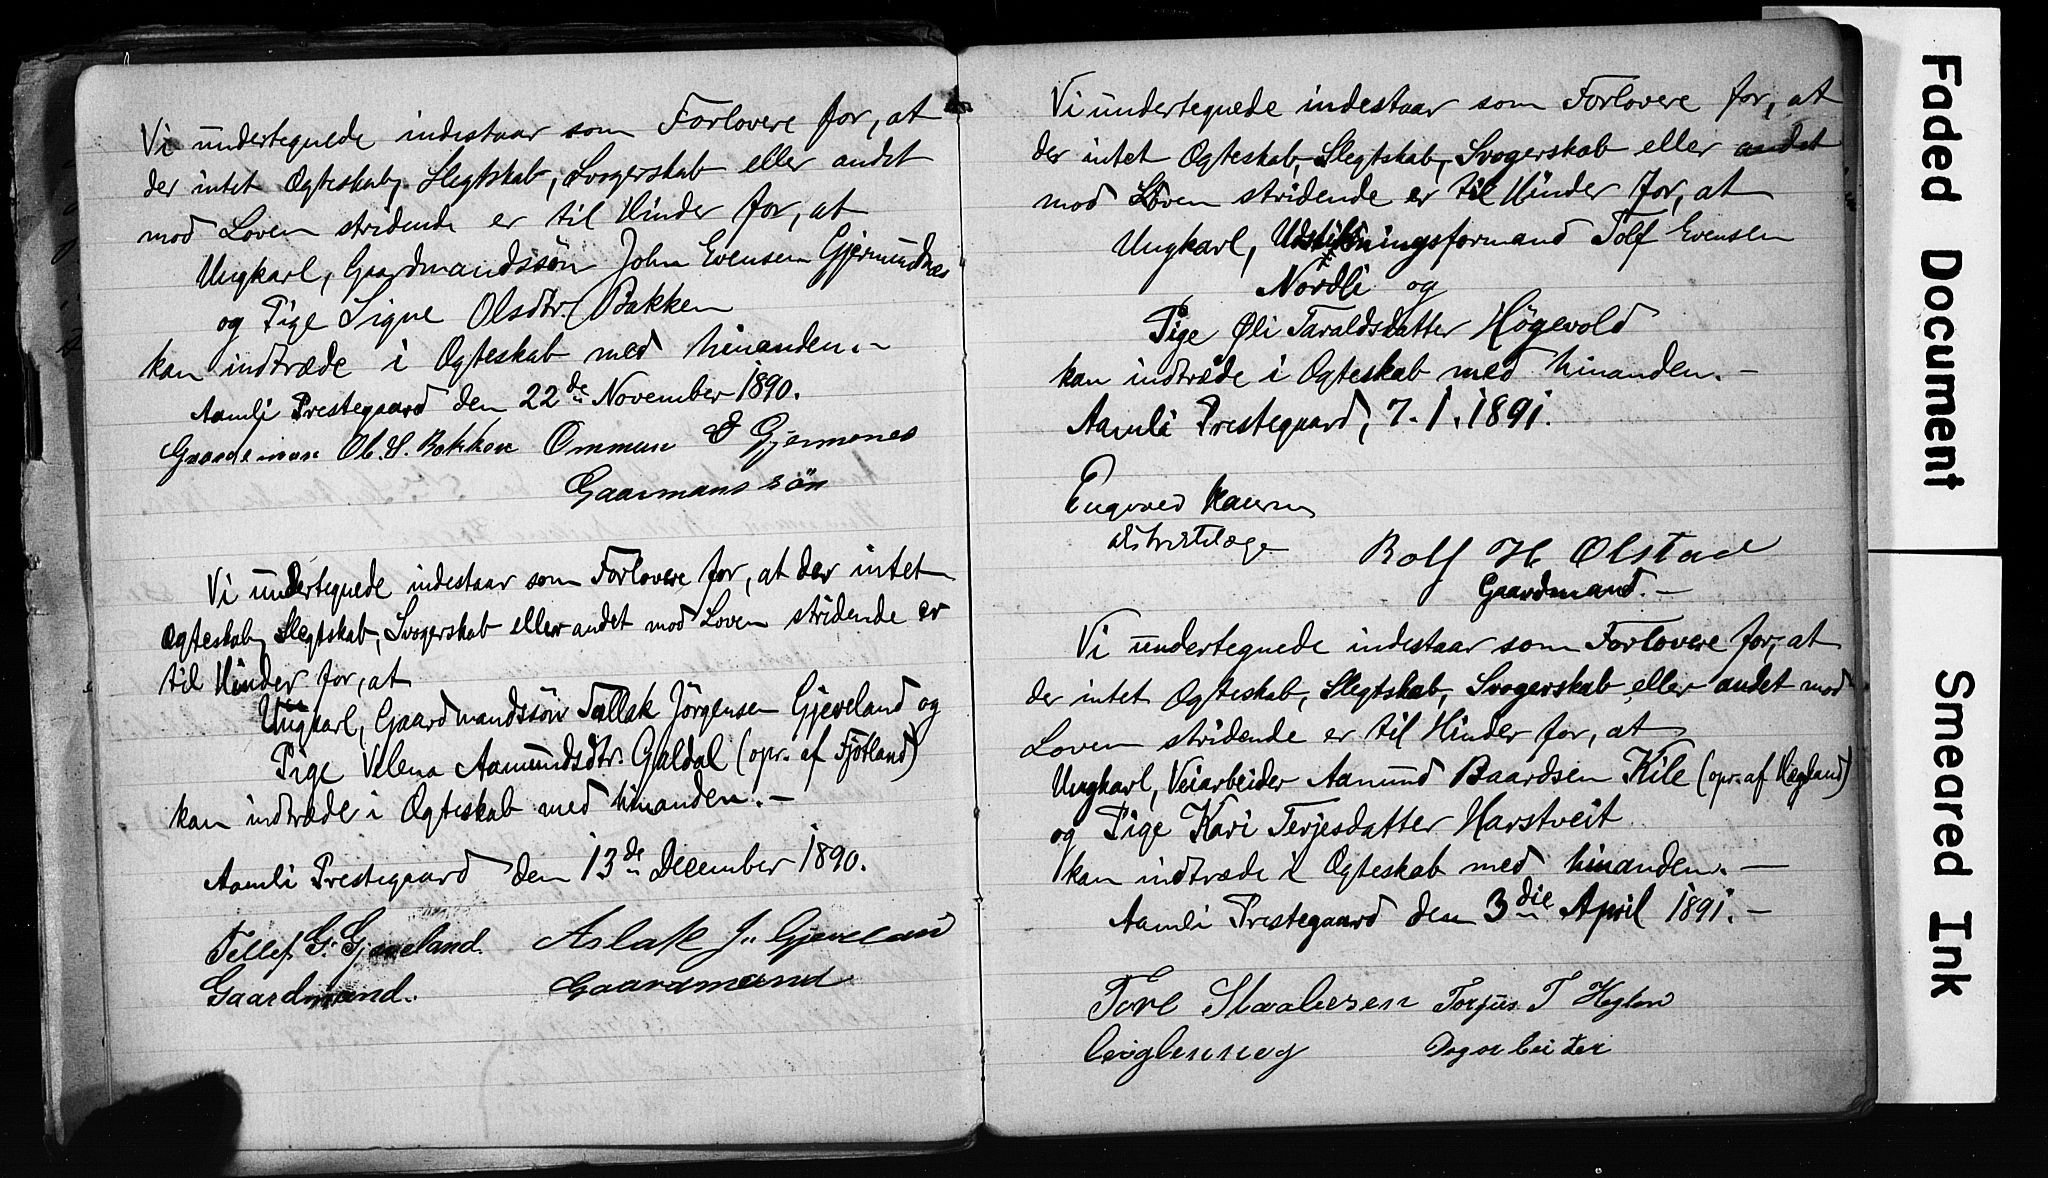 Vi undertegnede indestaar som Forlovere for, at
der intet Ogteskab, Slegtskab, Svogerskab eller andet
mod Loven stridende er til Hinder for, at
Ungkarl, Gaardmandssön John Evensen Gjermundnes
og Pige Signe Olsdtr. Bakken
kan indtræde i Ogteskab med hinanden.-
Aamli Prestegaard den 22de November 1890.
Ol. S. Bakken Ommun E Gjermenes
Gaarmans sön
Vi undertegnede indestaar som Forlovere for, at der intet
Ogteskab, Slegtskab, Svogerskab eller andet mod Loven stridende er
til Hinder for, at
Ungkarl, Gaardmandssön Tallak Jörgensen Gjeveland og
Pige Velena Aamundsdtr. Galdal (opr. af Fjötland)
kan indtræde i Ogteskab med hinanden.-
Aamli Prestegaard den 13de December 1890.
Tellef G. Gjeveland. Aslak J. Gjeveland
Gaardmand. Gaardmand
Vi undertegnede indestaar som Forlovere for, at
der intet Ogteskab, Slegtskab, Svogerskab eller andet
mod Loven stridende er til Hinder for, at
Ungkarl, Udstikningsformand Tolf Evensen
Nordli og
Pige Øli Taraldsdatter Högevold
kan indtræde i Ogteskab med hinanden.-
Aamli Prestegaard, 7.1.1891.
distriktslæge
Rolf H Ølstad
Gaardmand.-
Vi undertegnede indestaar som Forlovere for, at
der intet Ogteskab, Slegtskab, Svogerskab eller andet mod
Loven stridende er til Hinder for, at
Ungkarl, Veiarbeider Aamund Baardsen Kile (opr. af Hægland)
og Pige Kari Terjesdatter Harstveit
kan indtræde i Ogteskab med hinanden.-
Aamli Prestegaard den 3die April 1891.-
Tore Torjus T
Faded Document
Smeared Ink